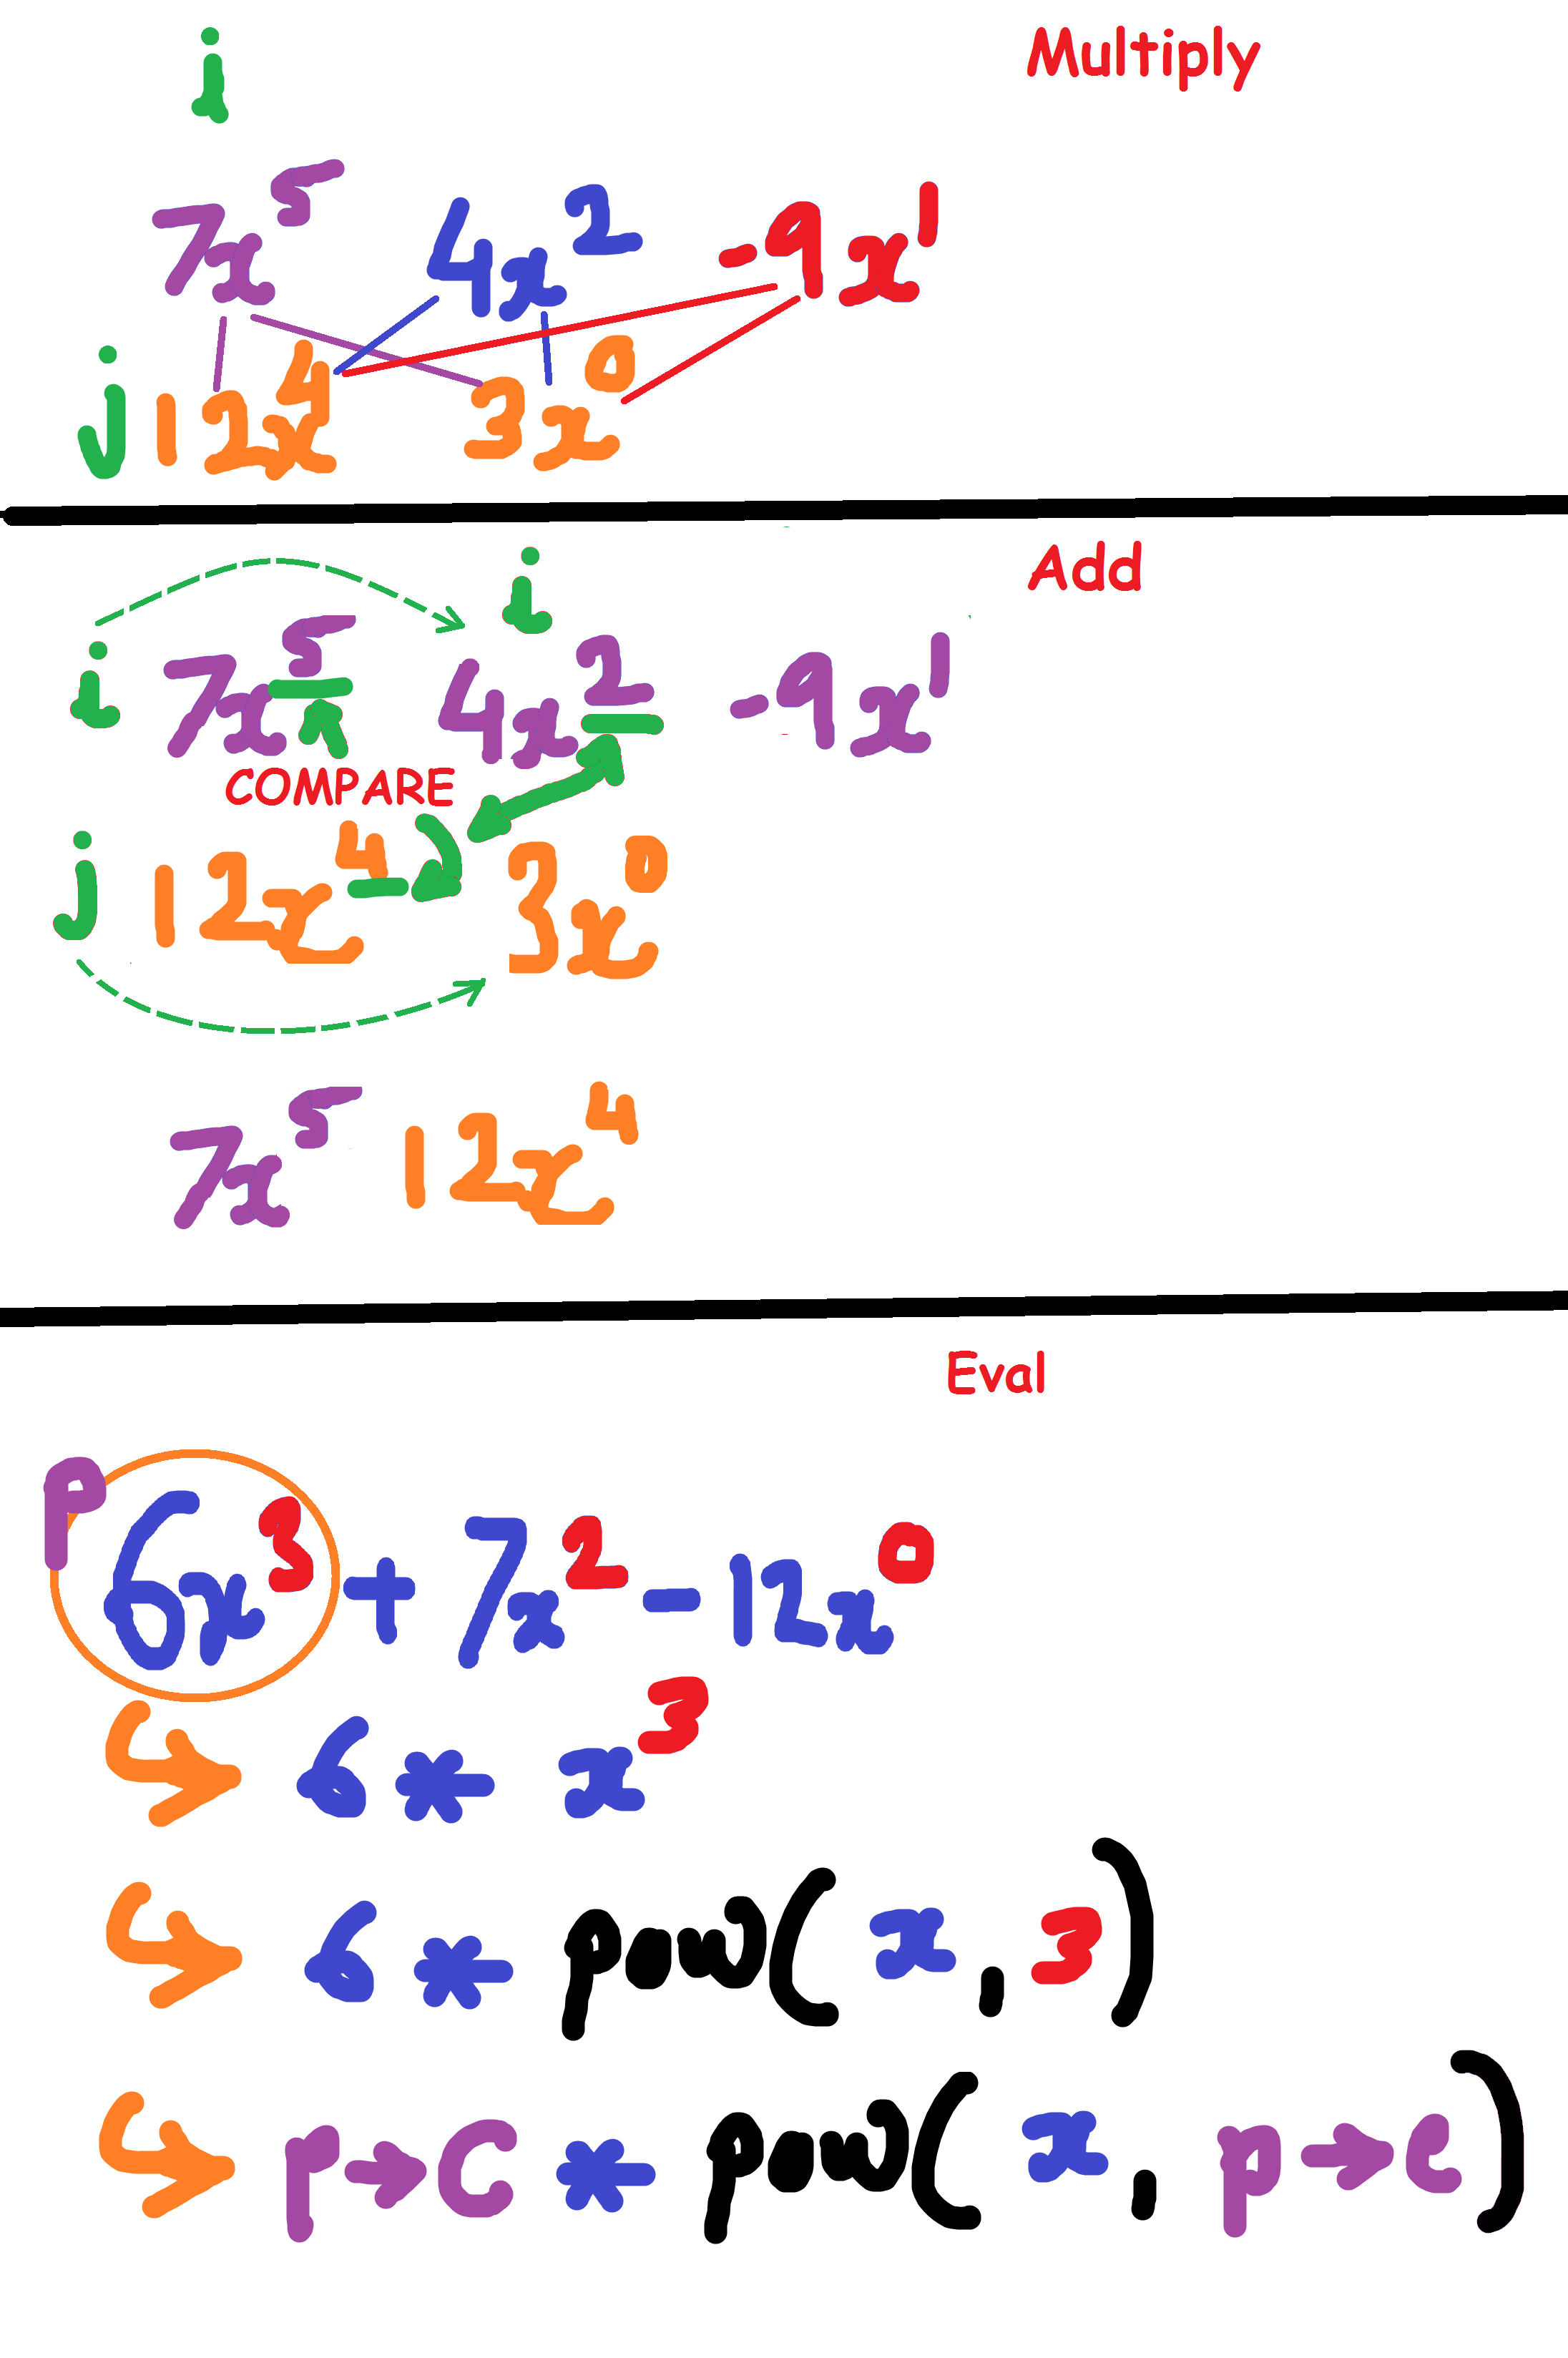 Multiply
i
7x⁵ 4x² -9x¹
j 12x⁴ 3x⁰
Add
i
i 7x⁵ 4x² -9x¹
COMPARE
j 12x⁴ 3x⁰
7x⁵ 12x⁴
Eval
p
6x³ + 7x² - 12x⁰
6 * x³
6 * pow(x, 3)
p→c * pow(x, p→e)